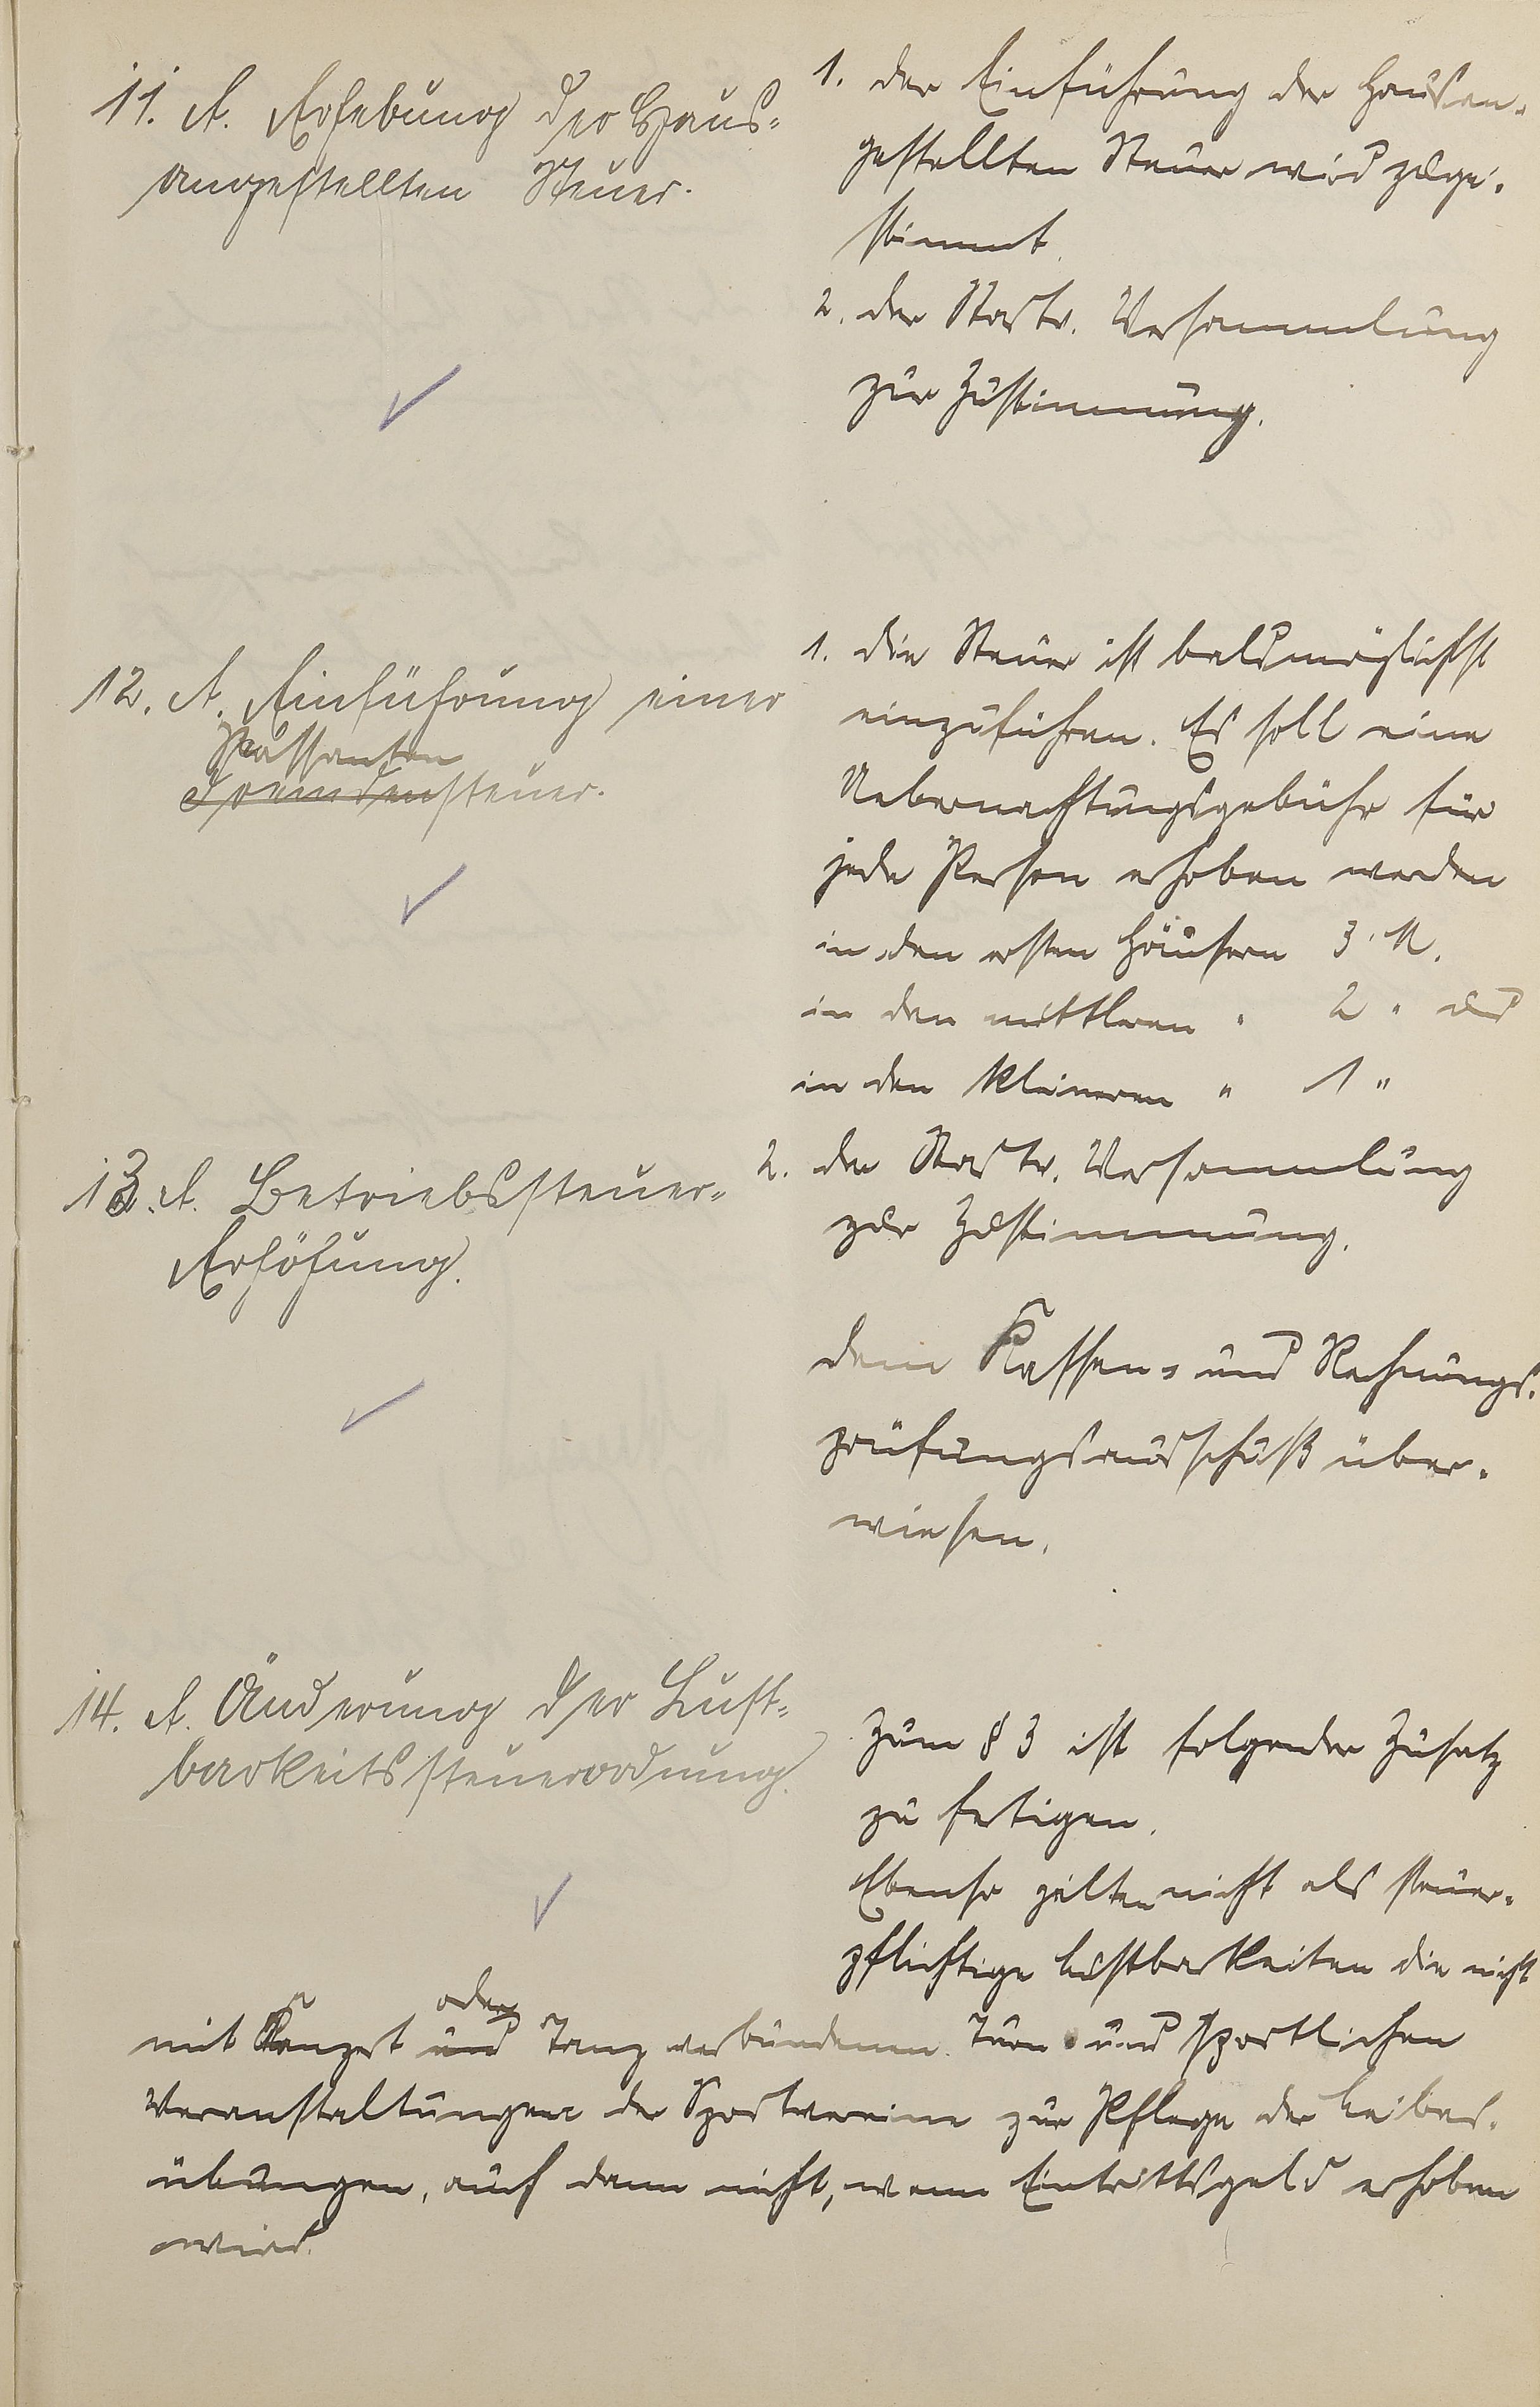 11. A. Erhebung der Haus-
angestellten Steuer.
1. der Einführung der Hausan-
gestellten Steuer wird zuge-
stimmt.
2. der Stadtv. Versammlung
zur Zustimmung.
12. A. Einführung einer
Passanten
Fremdensteuer.
1. die Steuer ist baldmöglichst
einzuführen. Es soll eine
Uebernachtungsgebühr für
jede Person erhoben werden
in den ersten Häusern 3 M.
in den mittleren " 2 " und
in den kleineren " 1 "
2. der Stadtv. Versammlung
zur Zustimmung.
13. A. Betriebssteuer-
Erhöhung.
dem Kassen- und Rechnungs-
prüfungsausschuß über-
wiesen.
14. A. Änderung der Lust-
barkeitssteuerordnung.
Zum § 3 ist folgender Zusatz
zu fertigen.
Ebenso gelten nicht als steuer-
pflichtige Lustbarkeiten die nicht
oder
mit Konzert und Tanz verbundenen Turn- und sportlichen
Veranstaltungen der Sportvereine zur Pflege der Leibes-
übungen, auch dann nicht, wenn Eintrittsgeld erhoben
wird.